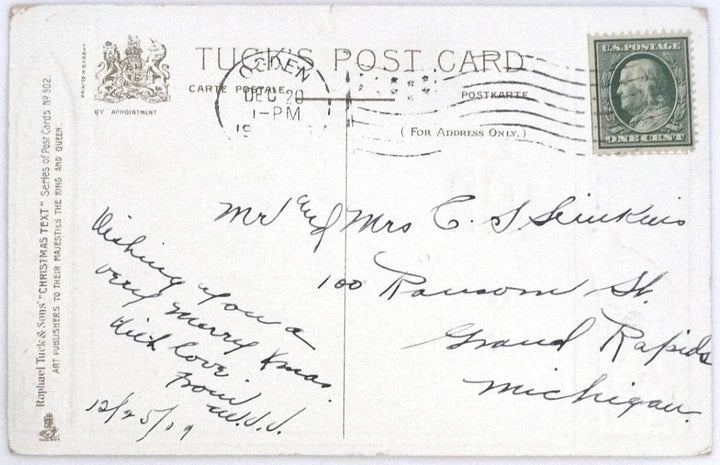 TUCK'S POST CARD
CARTE POSTALE
POSTKARTE
(FOR ADDRESS ONLY.)
BY APPOINTMENT
OGDEN
DEC 20
1-PM
19
U.S. POSTAGE
ONE CENT
Raphael Tuck & Sons' "CHRISTMAS TEXT" Series of Post Cards No 502.
ART PUBLISHERS TO THEIR MAJESTIES THE KING AND QUEEN.
Mr and Mrs C. S.
100 Ransom St.
Grand Rapids
Michigan.
Wishing you a
very merry Xmas.
With love
from
W.J.J.
12/25/09